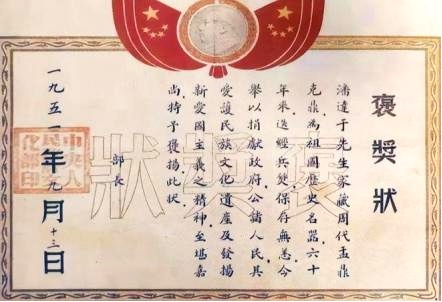 褒獎狀
潘達于先生家藏周代盂鼎
克鼎為祖國歷史名器六十
年來迭經兵燹保存無恙今
舉以捐獻政府公諸人民其
愛護民族文化遺產及發揚
新愛國主義之精神至堪嘉
尚特予褒揚此狀
部長
一九五一年九月十三日
褒獎狀